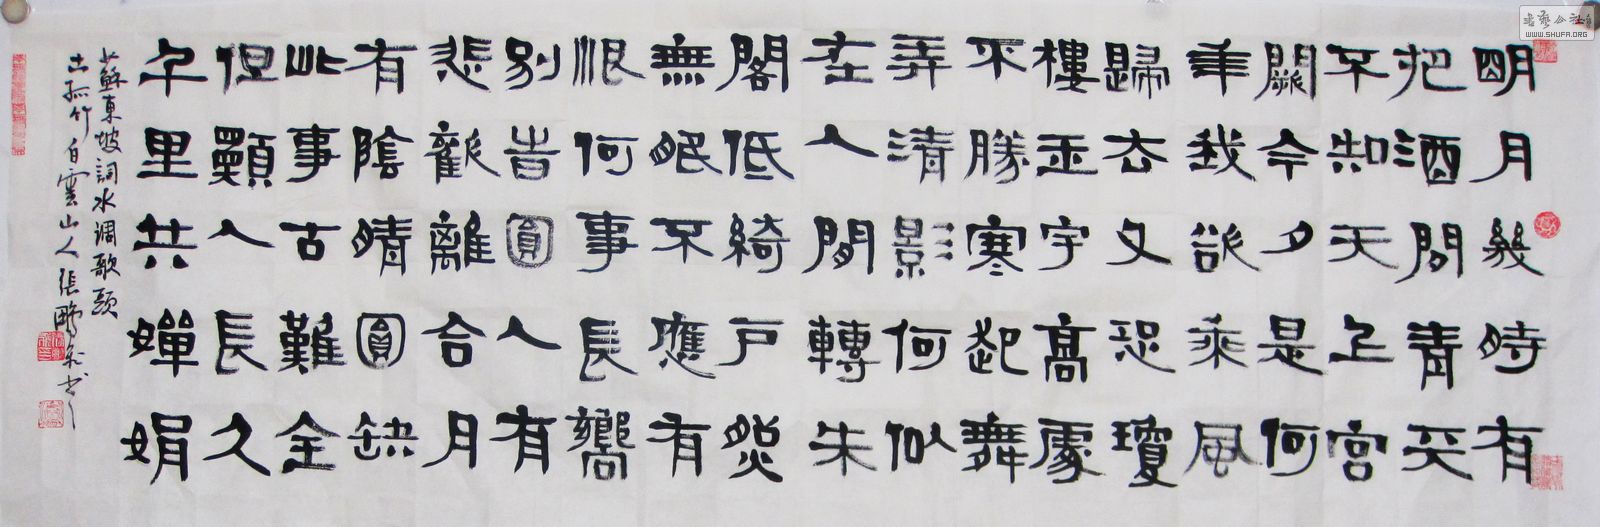 明月幾時有
把酒問青天
不知天上宮
闕今夕是何
年我欲乘風
歸去又恐瓊
樓玉宇高處
不勝寒起舞
弄清影何似
在人間轉朱
閣低綺戶照
無眠不應有
恨何事長嚮
別旹圓人有
悲歡離合月
有陰晴圓缺
此事古難全
但願人長久
千里共嬋娟
蘇東坡詞水调歌頭
古孤竹白雲山人張鵬書
WWW.SHUFA.ORG